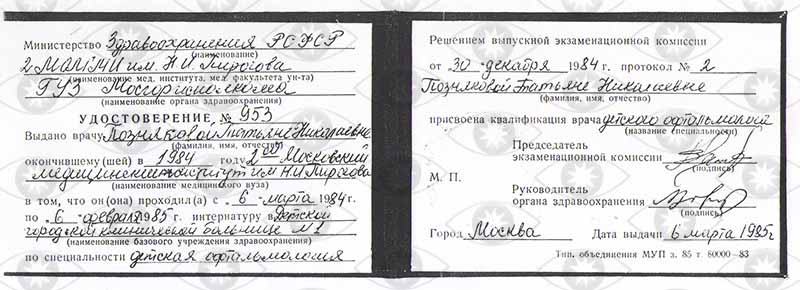 Министерство Здравоохранения РСФСР
(наименование)
2 МОЛГМИ им. Н.И. Пирогова
(наименование мед. института, мед. факультета ун-та)
ГУЗ Мосгорисполкома
(наименование органа здравоохранения)
УДОСТОВЕРЕНИЕ № 953
Выдано врачу Поздняковой Татьяне Николаевне
(фамилия, имя, отчество)
окончившему (шей) в 1984 году 2ой Московский
медицинский институт им Н.И. Пирогова
(наименование медицинского вуза)
в том, что он(она) проходил(а) с 6 марта 1984 г.
по 6 февраля 1985 г. интернатуру в Детской
городской клинической больнице №1
(наименование базового учреждения здравоохранения)
по специальности детская офтальмология
Решением выпускной экзаменационной комиссии
от 30 декабря 1984 г. протокол № 2
Поздняковой Татьяне Николаевне
(фамилия, имя, отчество)
присвоена квалификация врача детского офтальмолога
(название специальности)
Председатель
экзаменационной комиссии
(подпись)
М. П.
Руководитель
органа здравоохранения
(подпись)
Город Москва Дата выдачи 6 марта 1985 г
Тип. объединения МУП з. 85 т. 60000—83